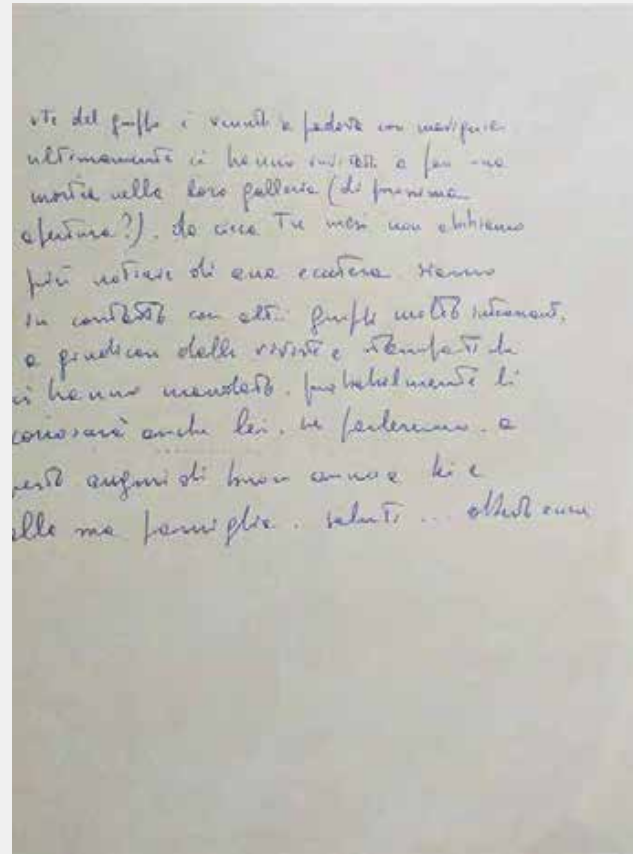 del gruppo è venuto a padova con
ultimamente ci hanno invitati a fare una
mostra nella loro galleria (di prossima
apertura?). da circa tre mesi non abbiamo
più notizie di ana eccetera. siamo
in contatto con altri gruppi molto interessanti,
a giudicare dalle riviste e stampati che
ci hanno mandato. probabilmente li
conoscerà anche lei. ne parleremo. a
presto auguri di buon anno a lei e
alla sua famiglia. saluti ...